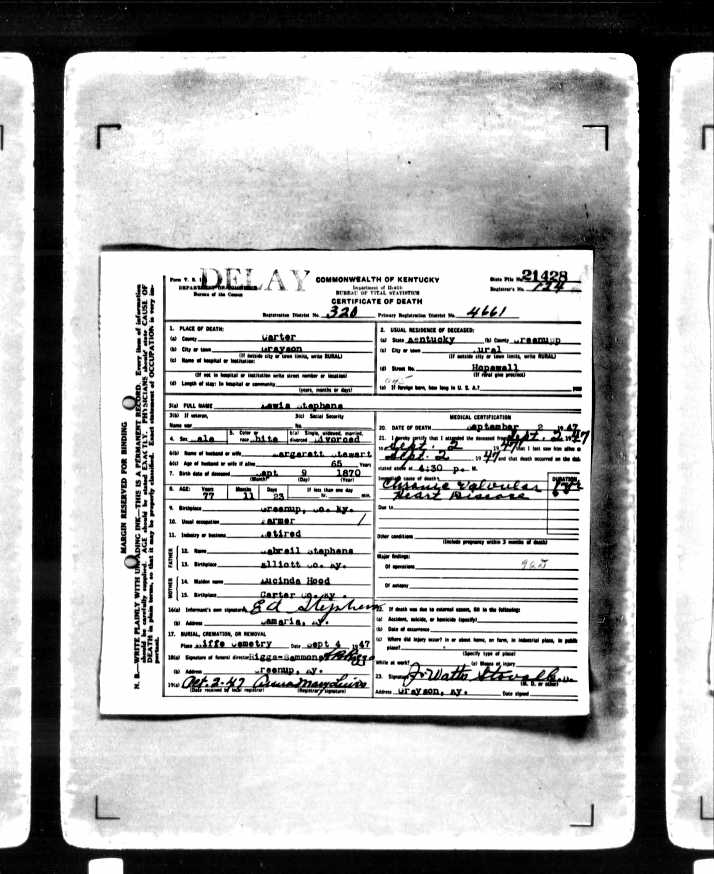 Form V. S. 1
DELAY
DEPARTMENT OF COMMERCE
Bureau of the Census
COMMONWEALTH OF KENTUCKY
Department of Health
BUREAU OF VITAL STATISTICS
CERTIFICATE OF DEATH
State File No. 21428
Registrar's No. 124
Registration District No. 320 Primary Registration District No. 4661
MARGIN RESERVED FOR BINDING
N. B.—WRITE PLAINLY WITH UNFADING INK—THIS IS A PERMANENT RECORD. Every item of information
should be carefully supplied. AGE should be stated EXACTLY. PHYSICIANS should state CAUSE OF
DEATH in plain terms, so that it may be properly classified. Exact statement of OCCUPATION is very im-
portant.
1. PLACE OF DEATH:
(a) County Carter
(b) City or town Grayson
(If outside city or town limits, write RURAL)
(c) Name of hospital or institution:
(If not in hospital or institution write street number or location)
(d) Length of stay: In hospital or community
(years, months or days)
2. USUAL RESIDENCE OF DECEASED:
(a) State Kentucky (b) County Greenup
(c) City or town ural
(If outside city or town limits, write RURAL)
(d) Street No. Hopewell
(If rural give precinct)
(e) If foreign born, how long in U. S. A.? years
3(a) FULL NAME Lewis Stephens
3(b) If veteran, 3(c) Social Security
Name war No.
4. Sex ale 5. Color or race hite 6(a) Single, widowed, married, divorced ivorced
6(b) Name of husband or wife argarett tewart
6(c) Age of husband or wife if alive 65 Years
7. Birth date of deceased Sept 9 1870
(Month) (Day) (Year)
8. AGE: Years Months Days If less than one day
77 11 23 hr. min.
9. Birthplace Greenup, Co. Ky.
10. Usual occupation Farmer
11. Industry or business etired
FATHER
12. Name abreil Stephens
13. Birthplace Elliott Co. Ky.
MOTHER
14. Maiden name Lucinda Hood
15. Birthplace Carter Co. Ky.
16(a) Informant's own signature Ed Stephens
(b) Address amaria, Ky.
17. BURIAL, CREMATION, OR REMOVAL
Place iffe Cemetry Date Sept 4 1947
18(a) Signature of funeral director Riggs-Hammond
(b) Address Greenup, Ky.
19(a) Oct. 2-47
(Date received by local registrar) (Registrar's signature)
MEDICAL CERTIFICATION
20. DATE OF DEATH September 2 1947
21. I hereby certify that I attended the deceased from Sept. 2 1947
to Sept. 2 1947 that I last saw him alive on
Sept. 2 1947 and that death occurred on the date
stated above at 4:30 p. M.
Immediate cause of death
Chronic Valvular
Heart Disease
DURATION
Due to
Other conditions
(Include pregnancy within 3 months of death)
Major findings:
Of operations
Of autopsy
22. If death was due to external causes, fill in the following:
(a) Accident, suicide, or homicide (specify)
(b) Date of occurrence
(c) Where did injury occur? in or about home, on farm, in industrial place, in public
place?
(Specify type of place)
While at work? (e) Means of injury
23. Signature J. Watts Stovall
(M. D. or other)
Address Grayson, Ky. Date signed